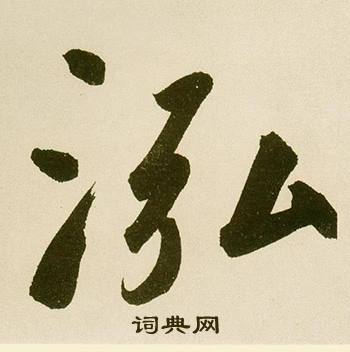 泓
词典网